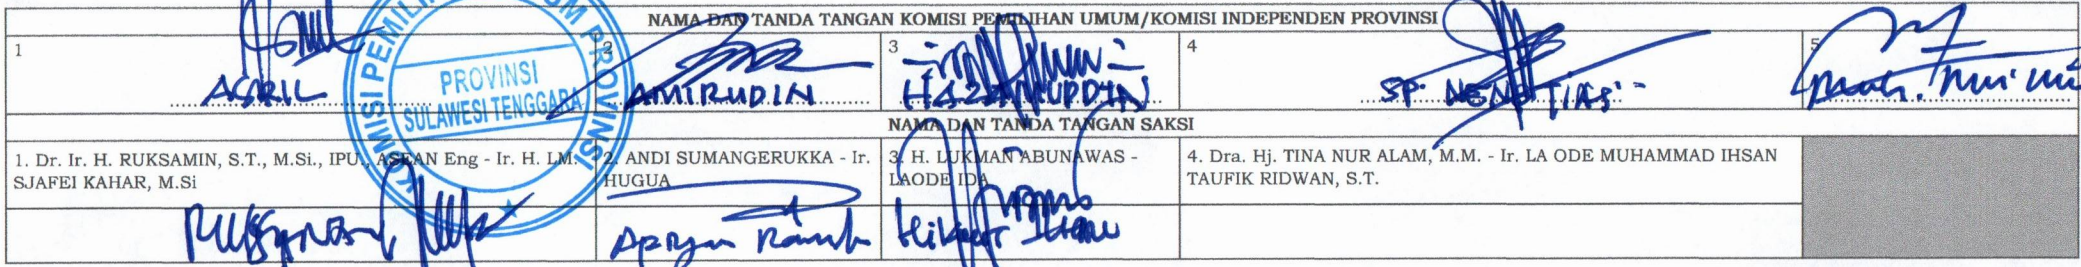 NAMA DAN TANDA TANGAN KOMISI PEMILIHAN UMUM/KOMISI INDEPENDEN PROVINSI
1 2 3 4 5
ASRIL AMIRUDIN HAZAMUDDIN SP. NENGTIAS
KOMISI PEMILIHAN UMUM PROVINSI
PROVINSI
SULAWESI TENGGARA
NAMA DAN TANDA TANGAN SAKSI
1. Dr. Ir. H. RUKSAMIN, S.T., M.Si., IPU., ASEAN Eng - Ir. H. LM. SJAFEI KAHAR, M.Si
2. ANDI SUMANGERUKKA - Ir. HUGUA
3. H. LUKMAN ABUNAWAS - LAODE IDA
4. Dra. Hj. TINA NUR ALAM, M.M. - Ir. LA ODE MUHAMMAD IHSAN TAUFIK RIDWAN, S.T.